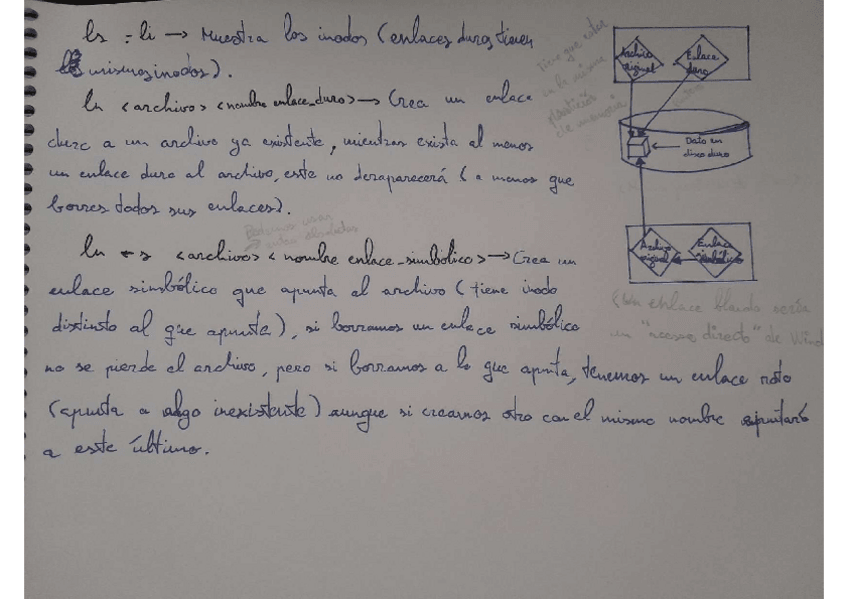 ls -li → Muestra los inodos (enlaces duros tienen
los mismos inodos).
ln <archivo> <nombre enlace_duro> → Crea un enlace
duro a un archivo ya existente, mientras exista al menos
un enlace duro al archivo, este no desaparecerá (a menos que
borres todos sus enlaces).
Podemos usar
rutas absolutas
ln -s <archivo> <nombre enlace_simbólico> → Crea un
enlace simbólico que apunta al archivo (tiene inodo
distinto al que apunta), si borramos un enlace simbólico
no se pierde el archivo, pero si borramos a lo que apunta, tenemos un enlace roto
(apunta a algo inexistente) aunque si creamos otro con el mismo nombre apuntará
a este último.
Tiene que estar
en la misma
partición
de memoria
Archivo
original
Enlace
duro
Dato en
disco duro
Archivo
original
Enlace
simbólico
(Un enlace blando sería
un "acceso directo" de Wind